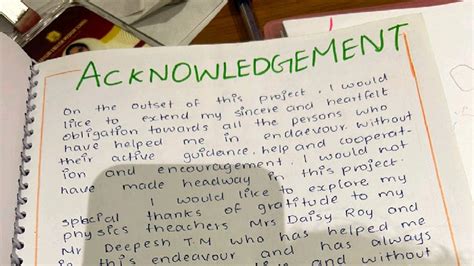 ACKNOWLEDGEMENT
On the outset of this project, I would
like to extend my sincere and heartfelt
obligation towards all the persons who
have helped me in endeavour. without
their active guidance, help and cooperat-
ion and encouragement. I would not
have made headway in this project.
I would like to explore my
special thanks of gratitude to my
physics theachers Mrs Daisy Roy and
Mr Deepesh T.M who has helped me
in this endeavour and has always
and without